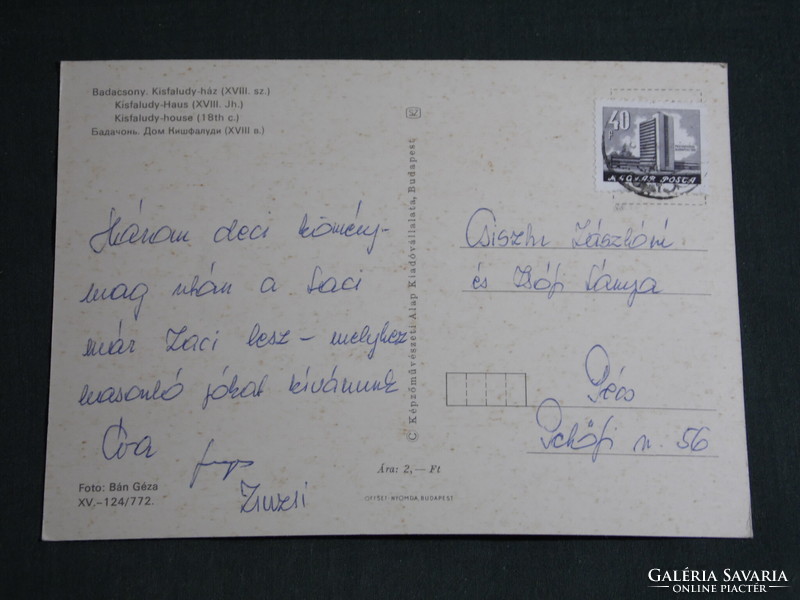 Badacsony. Kisfaludy-ház (XVIII. sz.)
Kisfaludy-Haus (XVIII. Jh.)
Kisfaludy-house (18th c.)
Бадачонь. Дом Кишфалуди (XVIII в.)
Három deci kömény-
mag után a Laci
már Zaci lesz – melyhez
hasonló jókat kívánunk
Éva
Zsuzsi
Foto: Bán Géza
XV.–124/772.
© Képzőművészeti Alap Kiadóvállalata, Budapest
Ára: 2,— Ft
OFFSET-NYOMDA, BUDAPEST
40 f
MAGYAR POSTA
Lászlóné
és
Pécs
Petőfi u. 56
GALÉRIA SAVARIA
ONLINE PIACTÉR